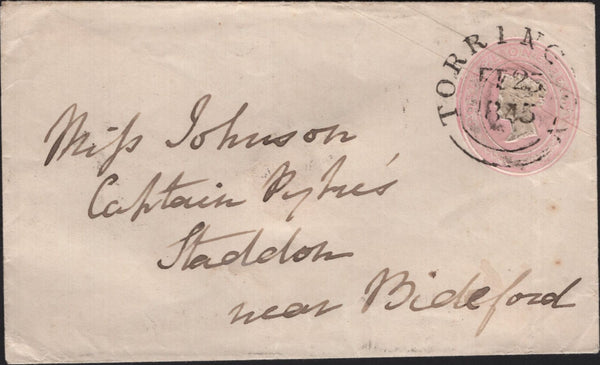 TORRINGTON
FE 25
1845
Miss Johnson
Captain Pyke's
Staddon
near Bideford